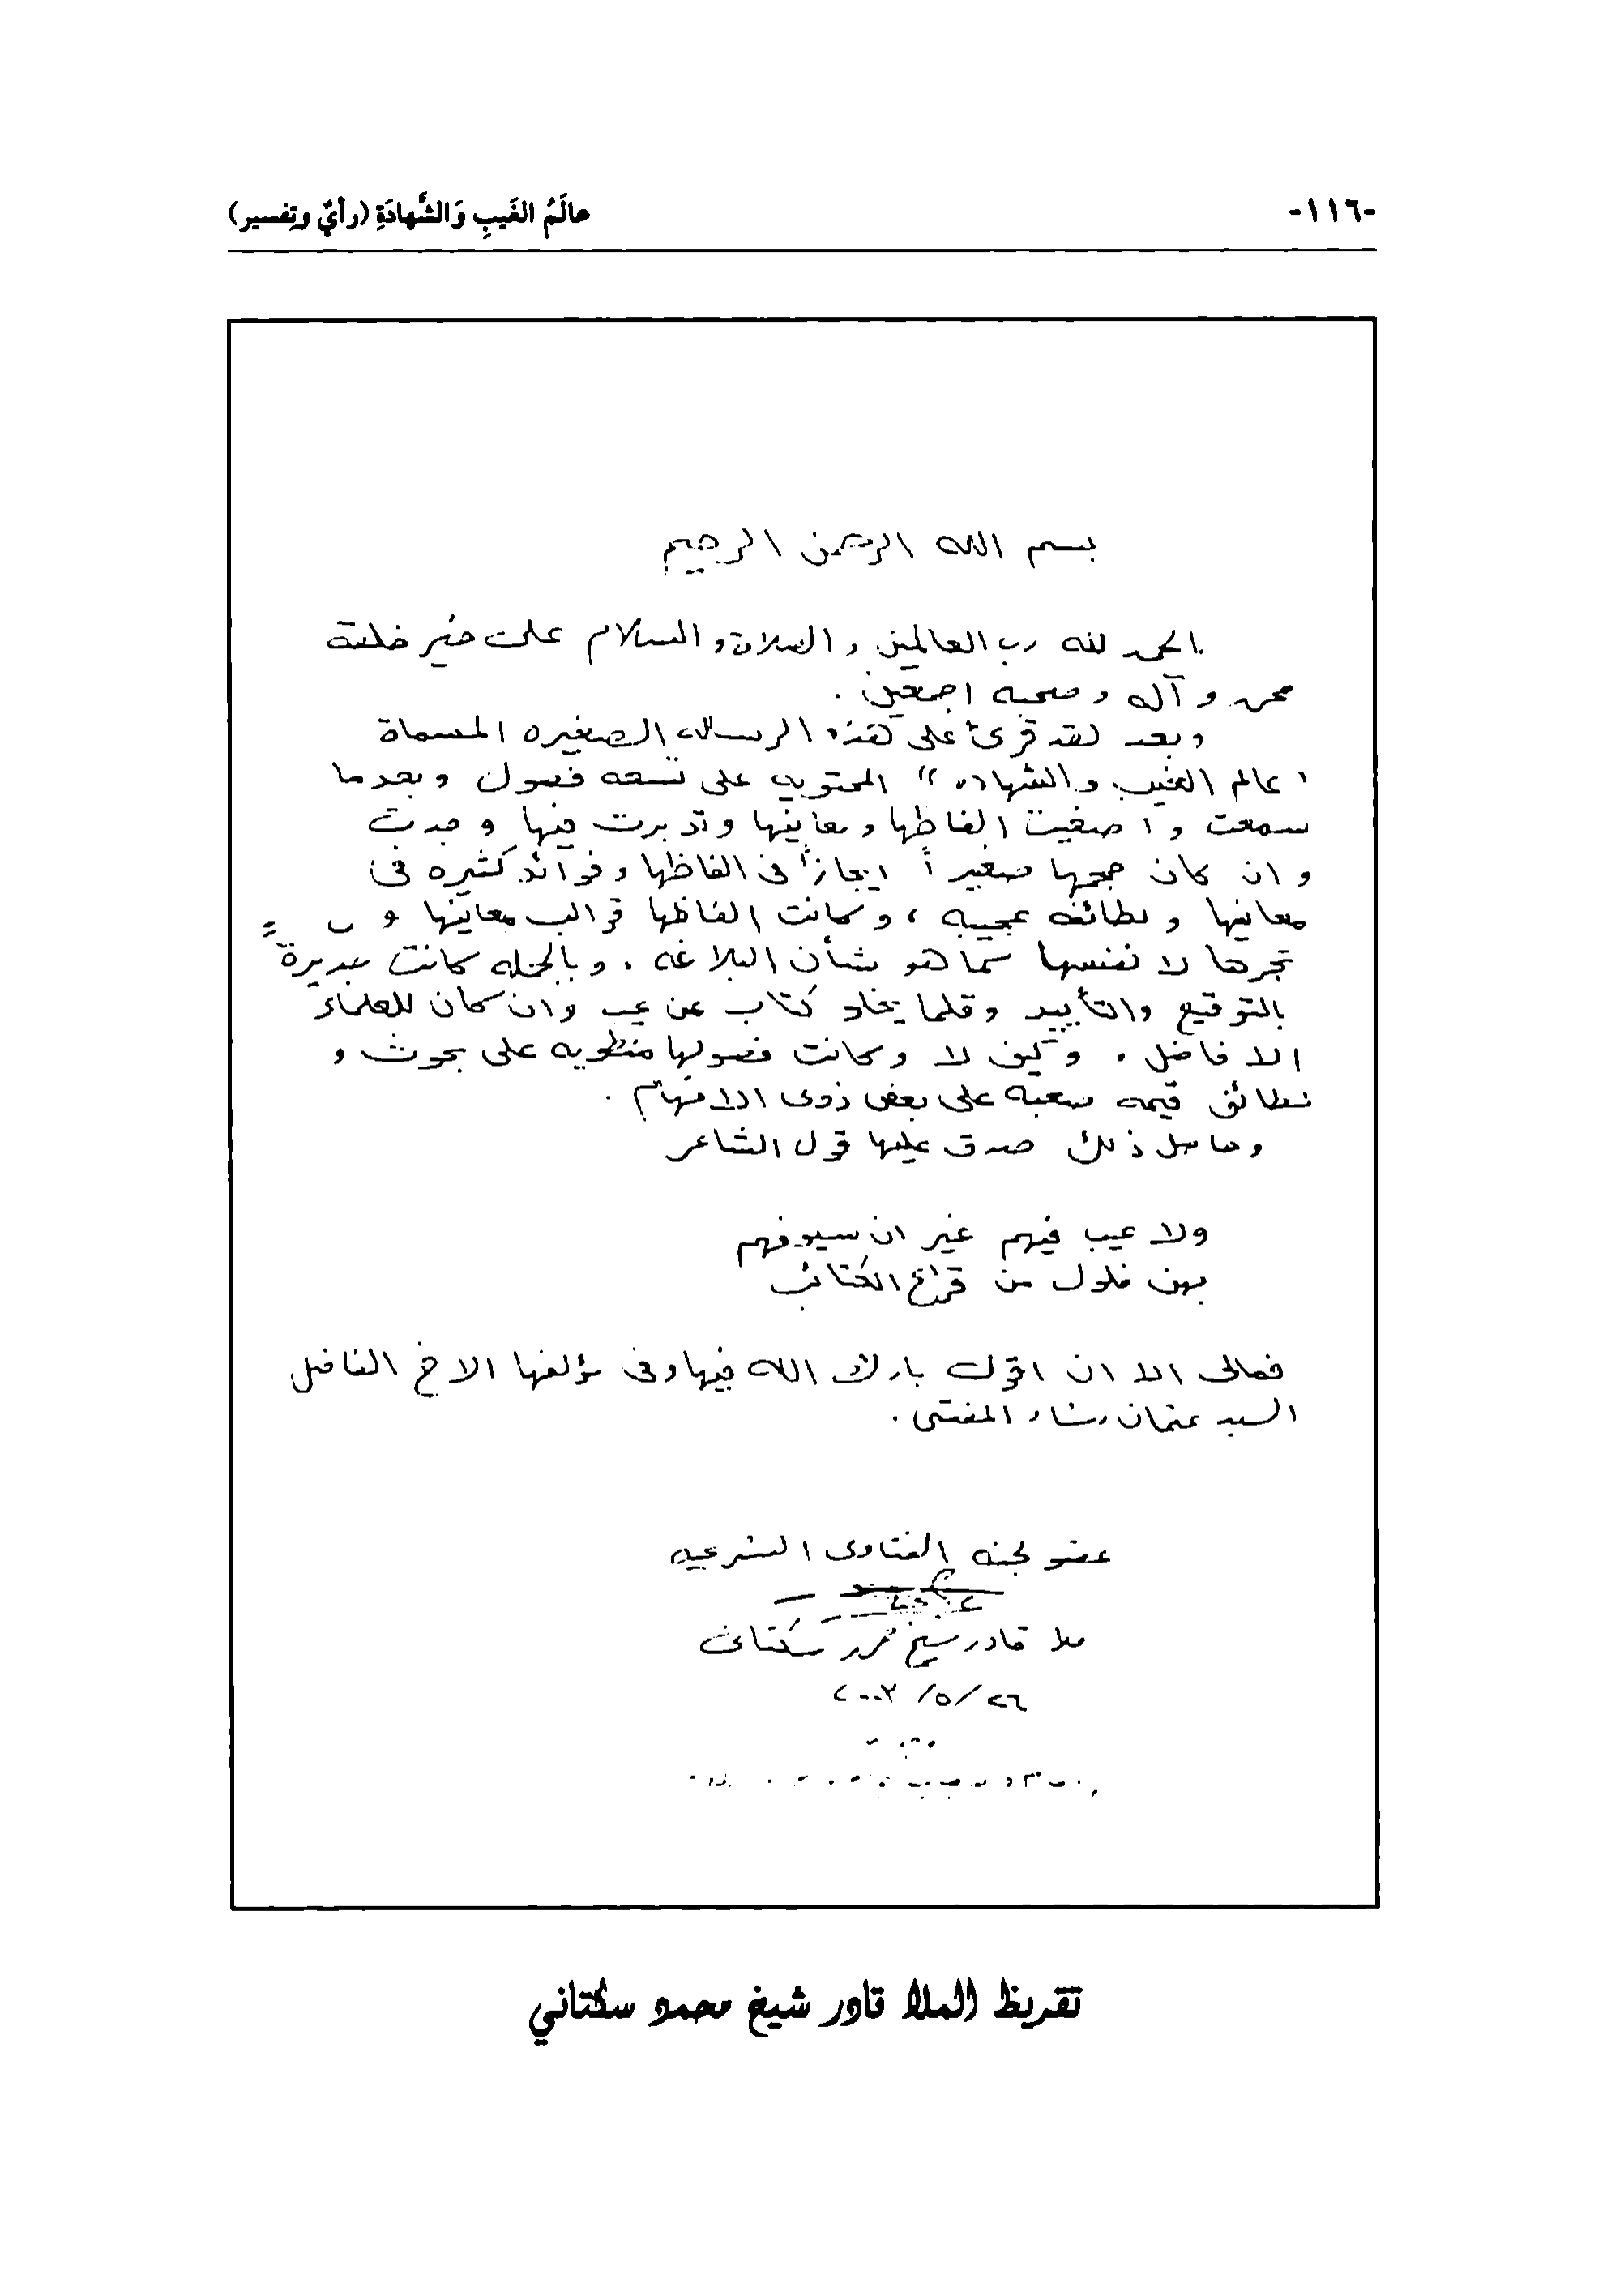 -١١٦-
عالَمُ الغَيبِ وَالشَّهادَةِ (رأيٌ وتفسير)
بسم الله الرحمن الرحيم
الحمد لله رب العالمين والصلاة والسلام على خير خلقه
محمد وآله وصحبه اجمعين .
وبعد لقد قرئ على هذه الرسالة الصغيره المسماة
" عالم الغيب والشهاده " المحتويه على تسعه فصول وبعدما
سمعت واصغيت الفاظها ومعانيها وتدبرت فيها وجدت
وان كان حجمها صغيراً ايجازاً فى الفاظها وفوائد كثيره فى
معانيها ولطائف عجيبه ، وكانت الفاظها قوالب معانيها و
تجرها لا نفسها كما هو شأن البلاغه . وبالجمله كانت جديرة
بالتوقيع والتأييد وقلما يخلد كتاب عن عيب وان كان للعلماء
الافاضل . وكيف لا وكانت فصولها منطويه على بحوث و
لطائف قيمه صعبة على بعض ذوى الافهام .
وحاصل ذلك صدق عليها قول الشاعر
ولا عيب فيهم غير ان سيوفهم
بهن فلول من قراع الكتائب
فمالى الا ان اقول بارك الله فيها وفى مؤلفها الاخ الفاضل
السيد عثمان رشاد المفتى .
عضو لجنه الفتاوى الشرعيه
ملا قادر شيخ محمد سكتانى
٢٦/٥/٢٠٠٢
تقريظ الملا قادر شيخ محمد سكتاني